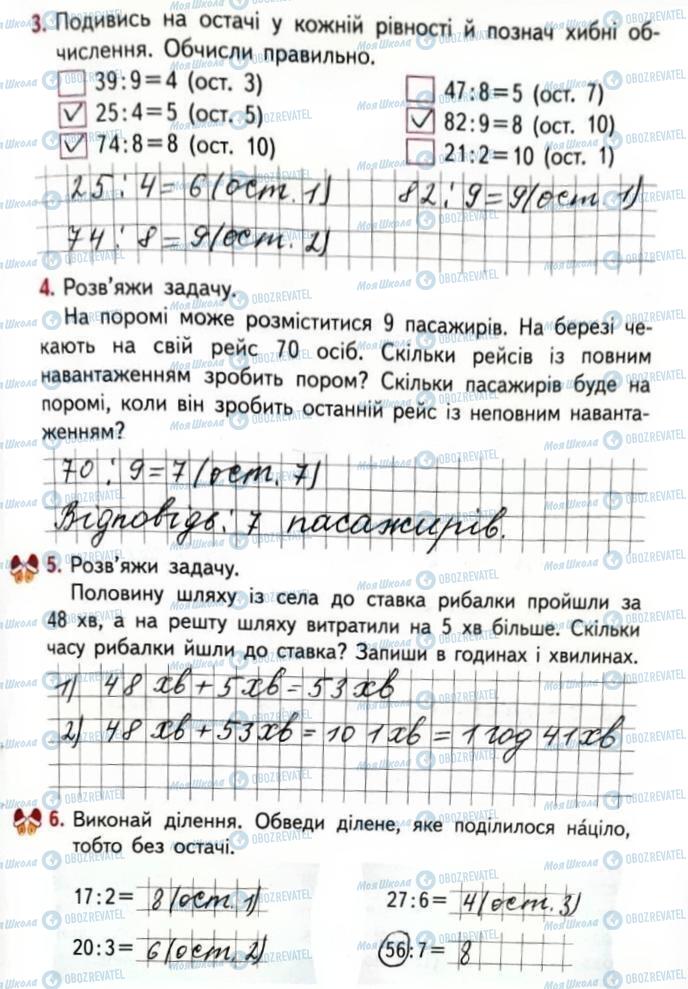 3. Подивись на остачі у кожній рівності й познач хибні об-
числення. Обчисли правильно.
39:9=4 (ост. 3)
✓ 25:4=5 (ост. 5)
✓ 74:8=8 (ост. 10)
47:8=5 (ост. 7)
✓ 82:9=8 (ост. 10)
21:2=10 (ост. 1)
25:4=6(ост.1) 82:9=9(ост.1)
74:8=9(ост.2)
4. Розв'яжи задачу.
На поромі може розміститися 9 пасажирів. На березі че-
кають на свій рейс 70 осіб. Скільки рейсів із повним
навантаженням зробить пором? Скільки пасажирів буде на
поромі, коли він зробить останній рейс із неповним наванта-
женням?
70:9=7(ост.7)
Відповідь: 7 пасажирів.
5. Розв'яжи задачу.
Половину шляху із села до ставка рибалки пройшли за
48 хв, а на решту шляху витратили на 5 хв більше. Скільки
часу рибалки йшли до ставка? Запиши в годинах і хвилинах.
1) 48 хв + 5 хв = 53 хв
2) 48 хв + 53 хв = 101 хв = 1 год 41 хв
6. Виконай ділення. Обведи ділене, яке поділилося на́ціло,
тобто без остачі.
17:2= 8(ост.1) 27:6= 4(ост.3)
20:3= 6(ост.2) 56:7= 8
МояШкола OBOZREVATEL